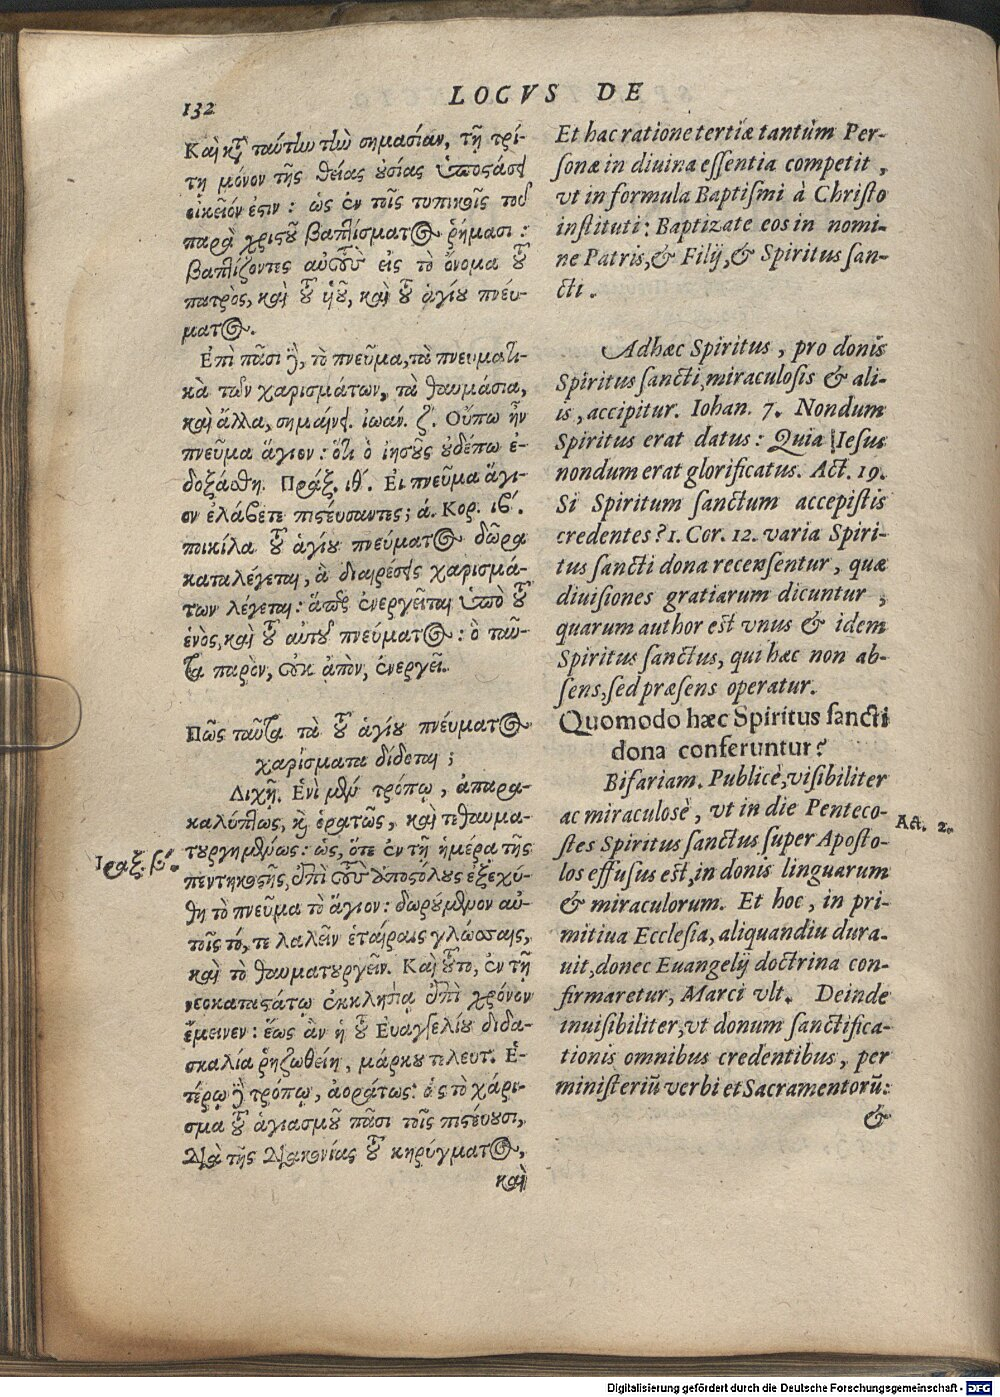 132
LOCVS DE
Καὶ κτ̃ ταύτην τὴν σημασίαν, τῇ τρί-
τη μόνον τῆς θείας οὐσίας ὑποστάσει
οἰκεῖόν ἐστιν: ὡς ἐν τοῖς τυπικοῖς τοῦ
παρὰ χριστοῦ βαπτίσματος ῥήμασι:
βαπτίζοντες αὐτοὺς εἰς τὸ ὄνομα τοῦ
πατρὸς, καὶ τοῦ ὑοῦ, καὶ τοῦ ἁγίου πνεύ-
ματος.
Επὶ πᾶσι δὲ, τὸ πνεῦμα, τὰ πνευματι-
κὰ τῶν χαρισμάτων, τὰ θαυμάσια,
καὶ ἄλλα, σημαίνει. ἰωάν. ζ΄. Οὔπω ἦν
πνεῦμα ἅγιον: ὅτι ὁ ἰησοῦς οὐδέπω ἐ-
δοξάσθη. Πράξ. ιθ΄. Εἰ πνεῦμα ἅγι-
ον ἐλάβετε πιστεύσαντες; ά. Κορ. ιβ΄.
ποικίλα τοῦ ἁγίου πνεύματος δῶρα
καταλέγεται, ἃ διαιρέσεις χαρισμά-
των λέγεται: ἅπερ ἐνεργεῖται ὑπὸ τοῦ
ἑνὸς, καὶ τοῦ αὐτοῦ πνεύματος: ὃ ταῦ-
τα παρὸν, οὐκ ἀπὸν, ἐνεργεῖ.
Πῶς ταῦτα τὰ τοῦ ἁγίου πνεύματος
χαρίσματα δίδεται;
Διχῆ. Ἑνὶ μὲν τρόπῳ, ἀπαρα-
καλύπτως, καὶ ὁρατῶς, καὶ τεθαυμα-
τουργημένως: ὡς, ὅτε ἐν τῇ ἡμέρα τῆς
πεντηκοστῆς, ἐπὶ τοὺς ἀποστόλους ἐξεχύ-
θη τὸ πνεῦμα τὸ ἅγιον: δωρούμενον αὐ-
τοῖς τό, τε λαλεῖν ἑταίραις γλώσσαις,
καὶ τὸ θαυματουργεῖν. Καὶ τοῦτο, ἐν τῇ
νεοκαταστάτῳ ἐκκλησίᾳ ἐπὶ χρόνον
ἔμεινεν: ἕως ἂν ἡ τοῦ Εὐαγγελίου διδα-
σκαλία ῥηζωθείη, μάρκου τελευτ. Ἑ-
τέρῳ δὲ τρόπῳ, ἀοράτως: ὡς τὸ χάρι-
σμα τοῦ ἁγιασμοῦ πᾶσι τοῖς πιστεύουσι,
Διὰ τῆς Διακονίας τοῦ κηρύγματος,
καὶ
Πραξ. β΄.
Et hac ratione tertiæ tantùm Per-
sonæ in diuina essentia competit,
vt in formula Baptismi à Christo
instituti: Baptizate eos in nomi-
ne Patris, & Filij, & Spiritus san-
cti.
Adhæc Spiritus, pro donis
Spiritus sancti, miraculosis & ali-
is, accipitur. Iohan. 7. Nondum
Spiritus erat datus: Quia Iesus
nondum erat glorificatus. Act. 19.
Si Spiritum sanctum accepistis
credentes? 1. Cor. 12. varia Spiri-
tus sancti dona recensentur, quæ
diuisiones gratiarum dicuntur,
quarum author est vnus & idem
Spiritus sanctus, qui hæc non ab-
sens, sed præsens operatur.
Quomodo hæc Spiritus sancti
dona conferuntur?
Bifariam. Publicè, visibiliter
ac miraculosè, vt in die Penteco-
stes Spiritus sanctus super Aposto-
los effusus est, in donis linguarum
& miraculorum. Et hoc, in pri-
mitiua Ecclesia, aliquandiu dura-
uit, donec Euangelij doctrina con-
firmaretur, Marci vlt. Deinde
inuisibiliter, vt donum sanctifica-
tionis omnibus credentibus, per
ministeriū verbi et Sacramentorū:
&
Act. 2.
Digitalisierung gefördert durch die Deutsche Forschungsgemeinschaft - DFG